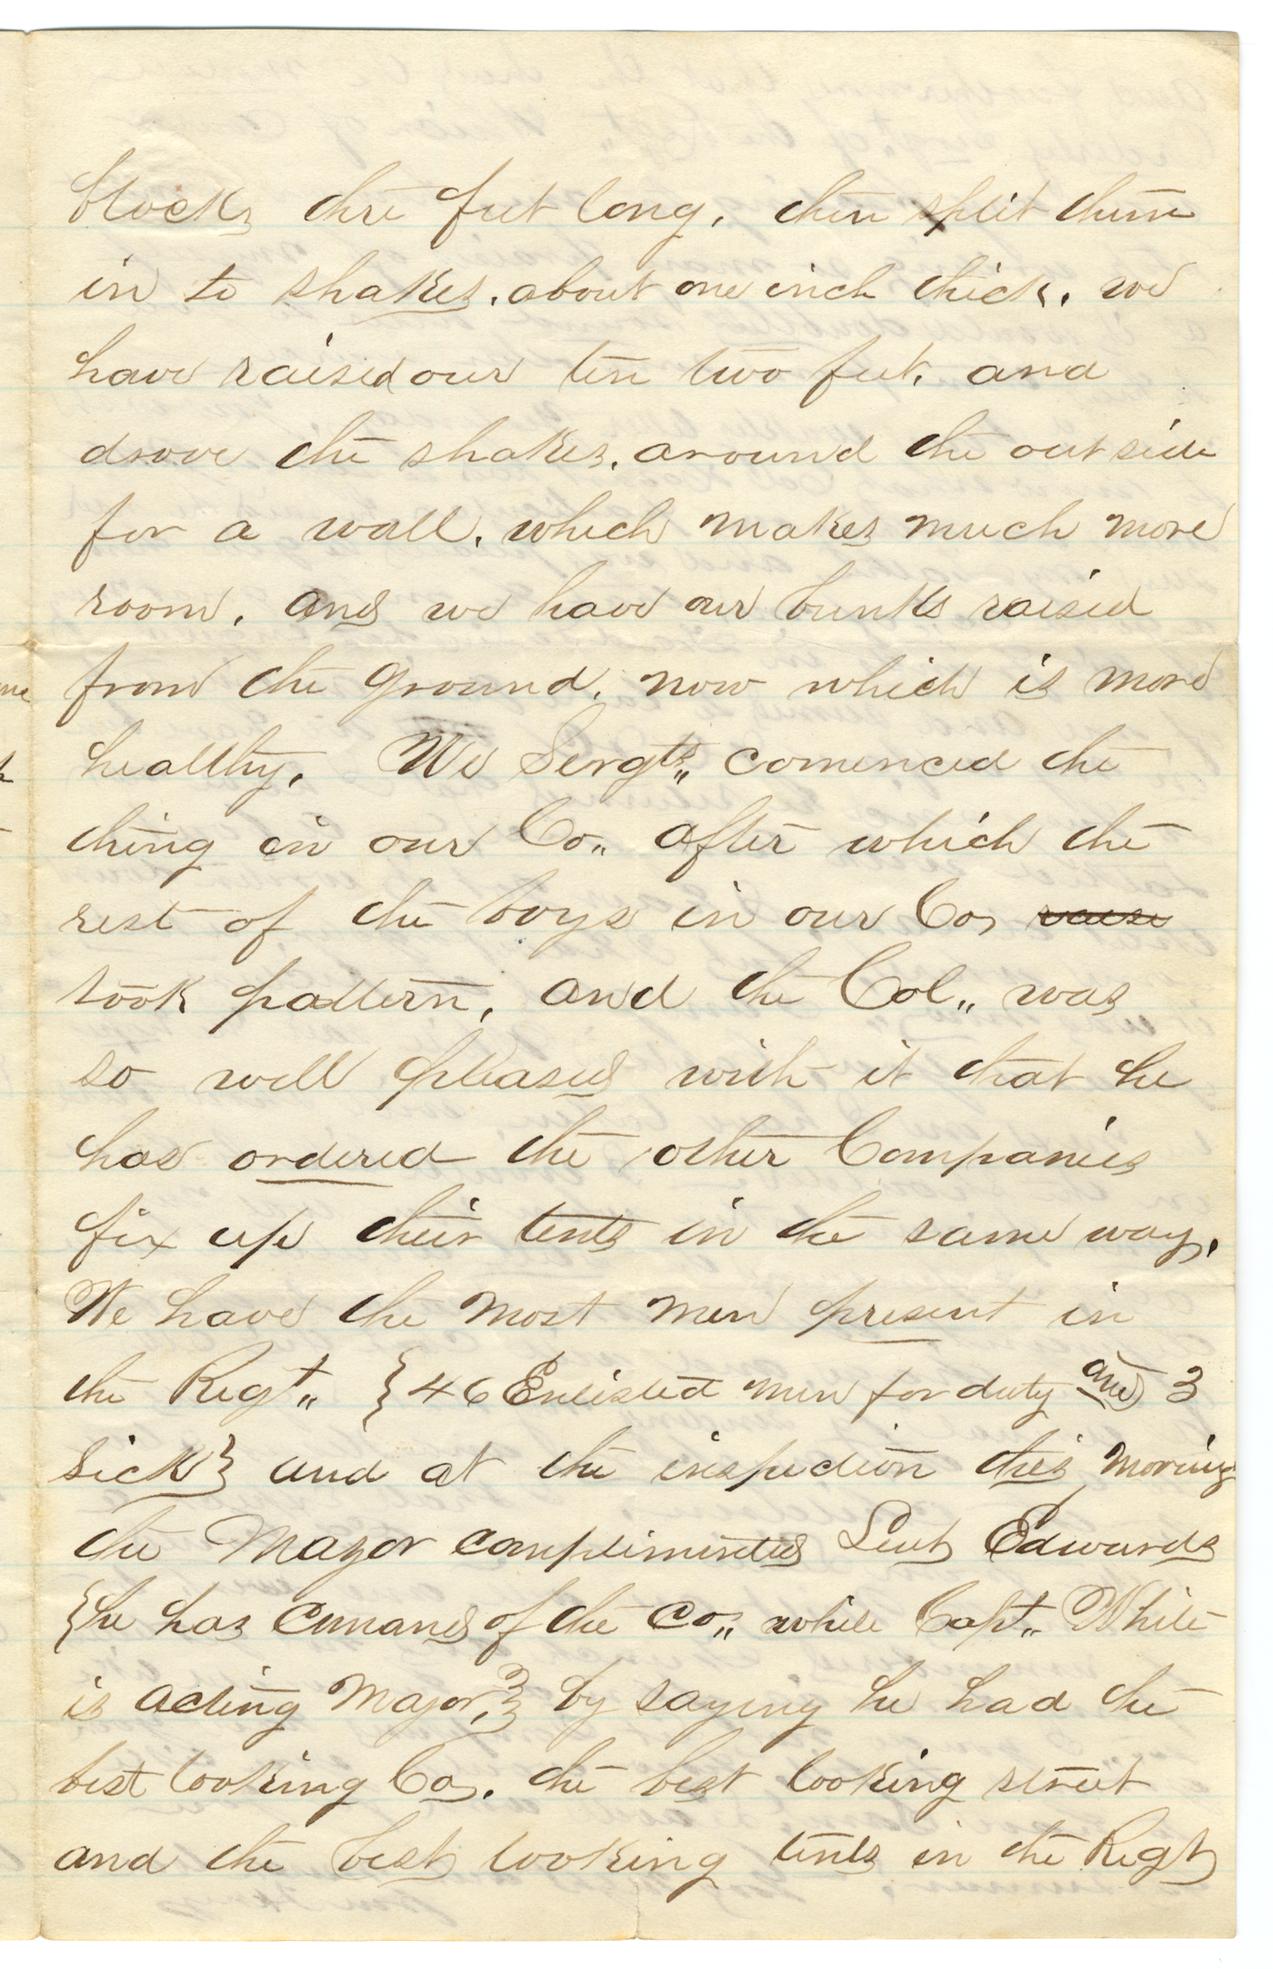 blocks thre feet long, then split them
in to shakes, about one inch thick, we
have raised our ten two feet, and
drove the shakes, around the outside
for a wall, which makes much more
room, and we have our bunks raised
from the ground, now which is more
healthy. We Sergts,, comenced the
thing in our Co,, after which the
rest of the boys in our Co, raise
took pattern, and the Col,, was
so well pleased with it that he
has ordered the other Companies
fix up their tents in the same way,
We have the most men present in
the Regt,, {46 Enlisted men for duty and 3
sick} and at the inspection this morning
the Major complimented Leut Edwards
{he has comand of the Co,, while Capt,, White
is acting Major,} by saying he had the
best looking Co, the best looking street
and the best looking tents in the Regt